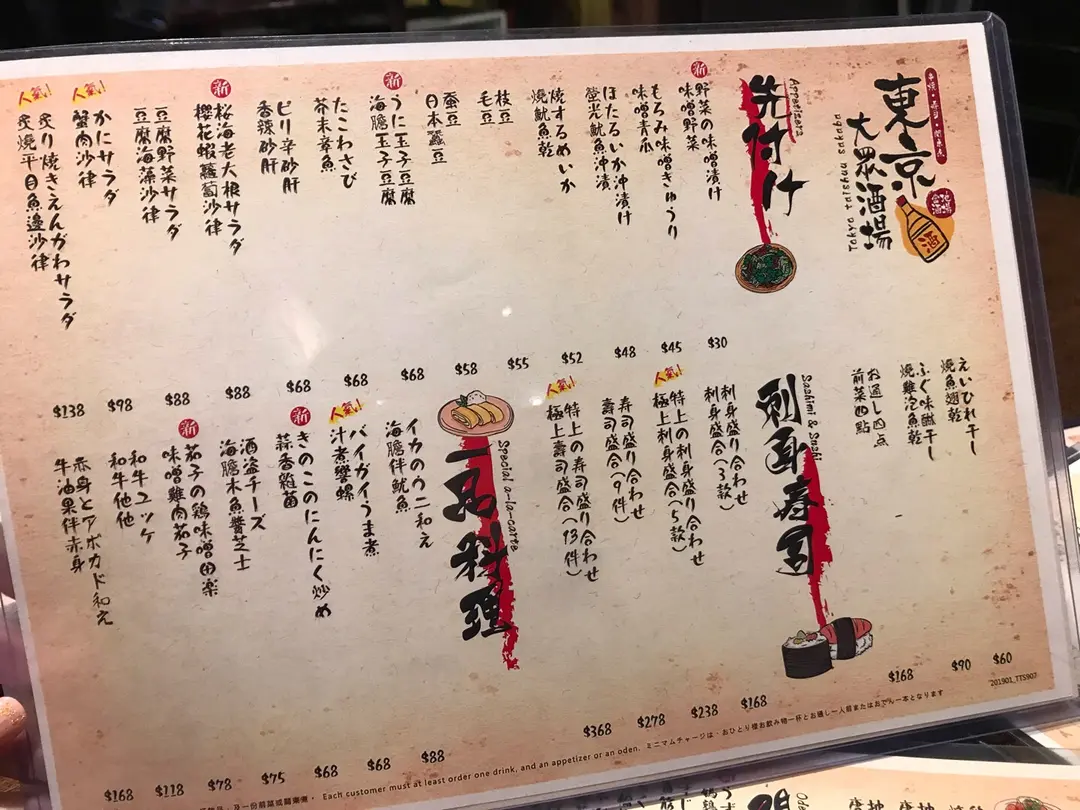 串燒・壽司・関東煮
東京
大眾酒場
Tokyo taishuu sakaba
地場
酒
先付け
Appetizers
新
野菜の味噌漬け
味噌野菜
$30
もろみ味噌きゅうり
味噌青瓜
$45
ほたるいか沖漬け
螢光魷魚沖漬
$48
焼するめいか
燒魷魚乾
$52
枝豆
毛豆
$55
蚕豆
日本蠶豆
$58
新
うに玉子豆腐
海膽玉子豆腐
$68
たこわさび
茶末章魚
$68
ピリ辛砂肝
香辣砂肝
$68
新
桜海老大根サラダ
櫻花蝦蘿蔔沙律
$88
豆腐野菜サラダ
豆腐海藻沙律
$88
人氣!
かにサラダ
蟹肉沙律
$98
人氣!
炙り焼きえんがわサラダ
炙燒平目魚邊沙律
$138
えいひれ干し
燒魚翅乾
$60
ふぐ味醂干し
燒雞泡魚乾
$90
お通し四点
前菜四點
$168
刺身寿司
Sashimi & Sushi
刺身盛り合わせ
刺身盛合(3款)
$168
人氣!
特上の刺身盛り合わせ
極上刺身盛合(5款)
$238
寿司盛り合わせ
壽司盛合(9件)
$278
人氣!
特上の寿司盛り合わせ
極上壽司盛合(13件)
$368
一品料理
Special a-la-carte
イカのウニ和え
海膽伴魷魚
$88
人氣!
バイガイうま煮
汁煮響螺
$68
新
きのこのにんにく炒め
蒜香雜菌
$68
酒盗チーズ
海膽木魚醬芝士
$75
新
茄子の鶏味噌田楽
味噌雞肉茄子
$78
和牛ユッケ
和牛他他
$118
赤身とアボカド和え
牛油果伴赤身
$168
201901_TTS907
Each customer must at least order one drink, and an appetizer or an oden. ミニマムチャージは、おひとり様お飲み物一杯とお通し一人前またはおでん一本となります